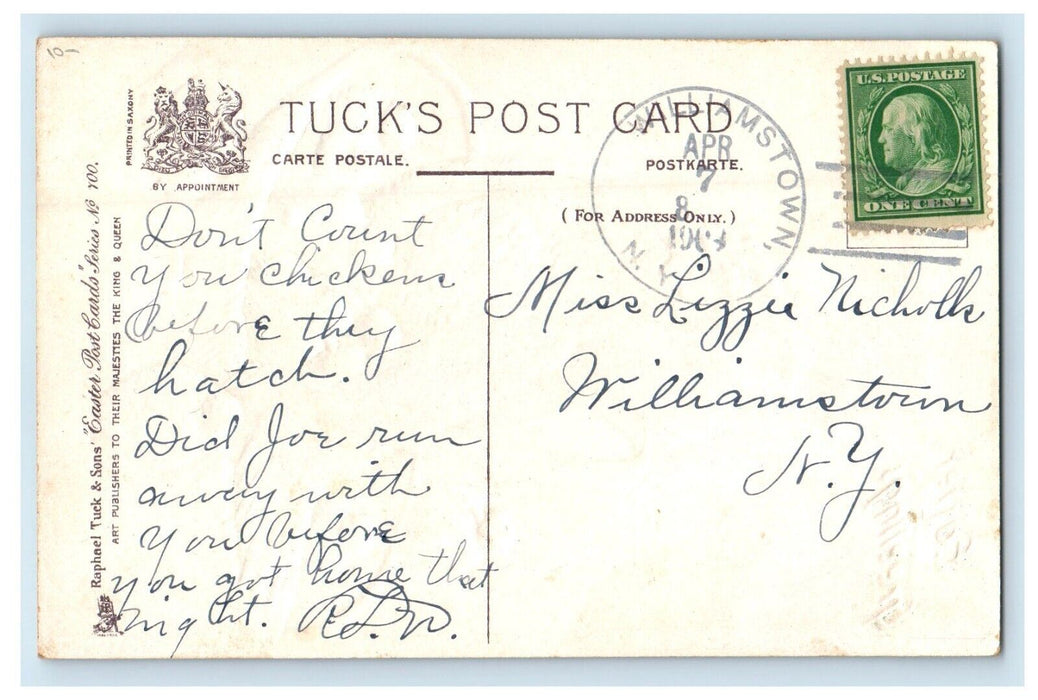 10-
PRINTED IN SAXONY
BY APPOINTMENT
TUCK'S POST CARD
CARTE POSTALE.
POSTKARTE.
(FOR ADDRESS ONLY.)
WILLIAMSTOWN,
APR
7
8
N.Y.
U.S. POSTAGE
ONE CENT
Raphael Tuck & Sons' "Easter Post Cards" Series No 700.
ART PUBLISHERS TO THEIR MAJESTIES THE KING & QUEEN
Don't Count
you chickens
before they
hatch.
Did Joe run
away with
you before
you got home that
night. R.L.W.
Miss Lizzie Nicholls
Williamstown
N.Y.